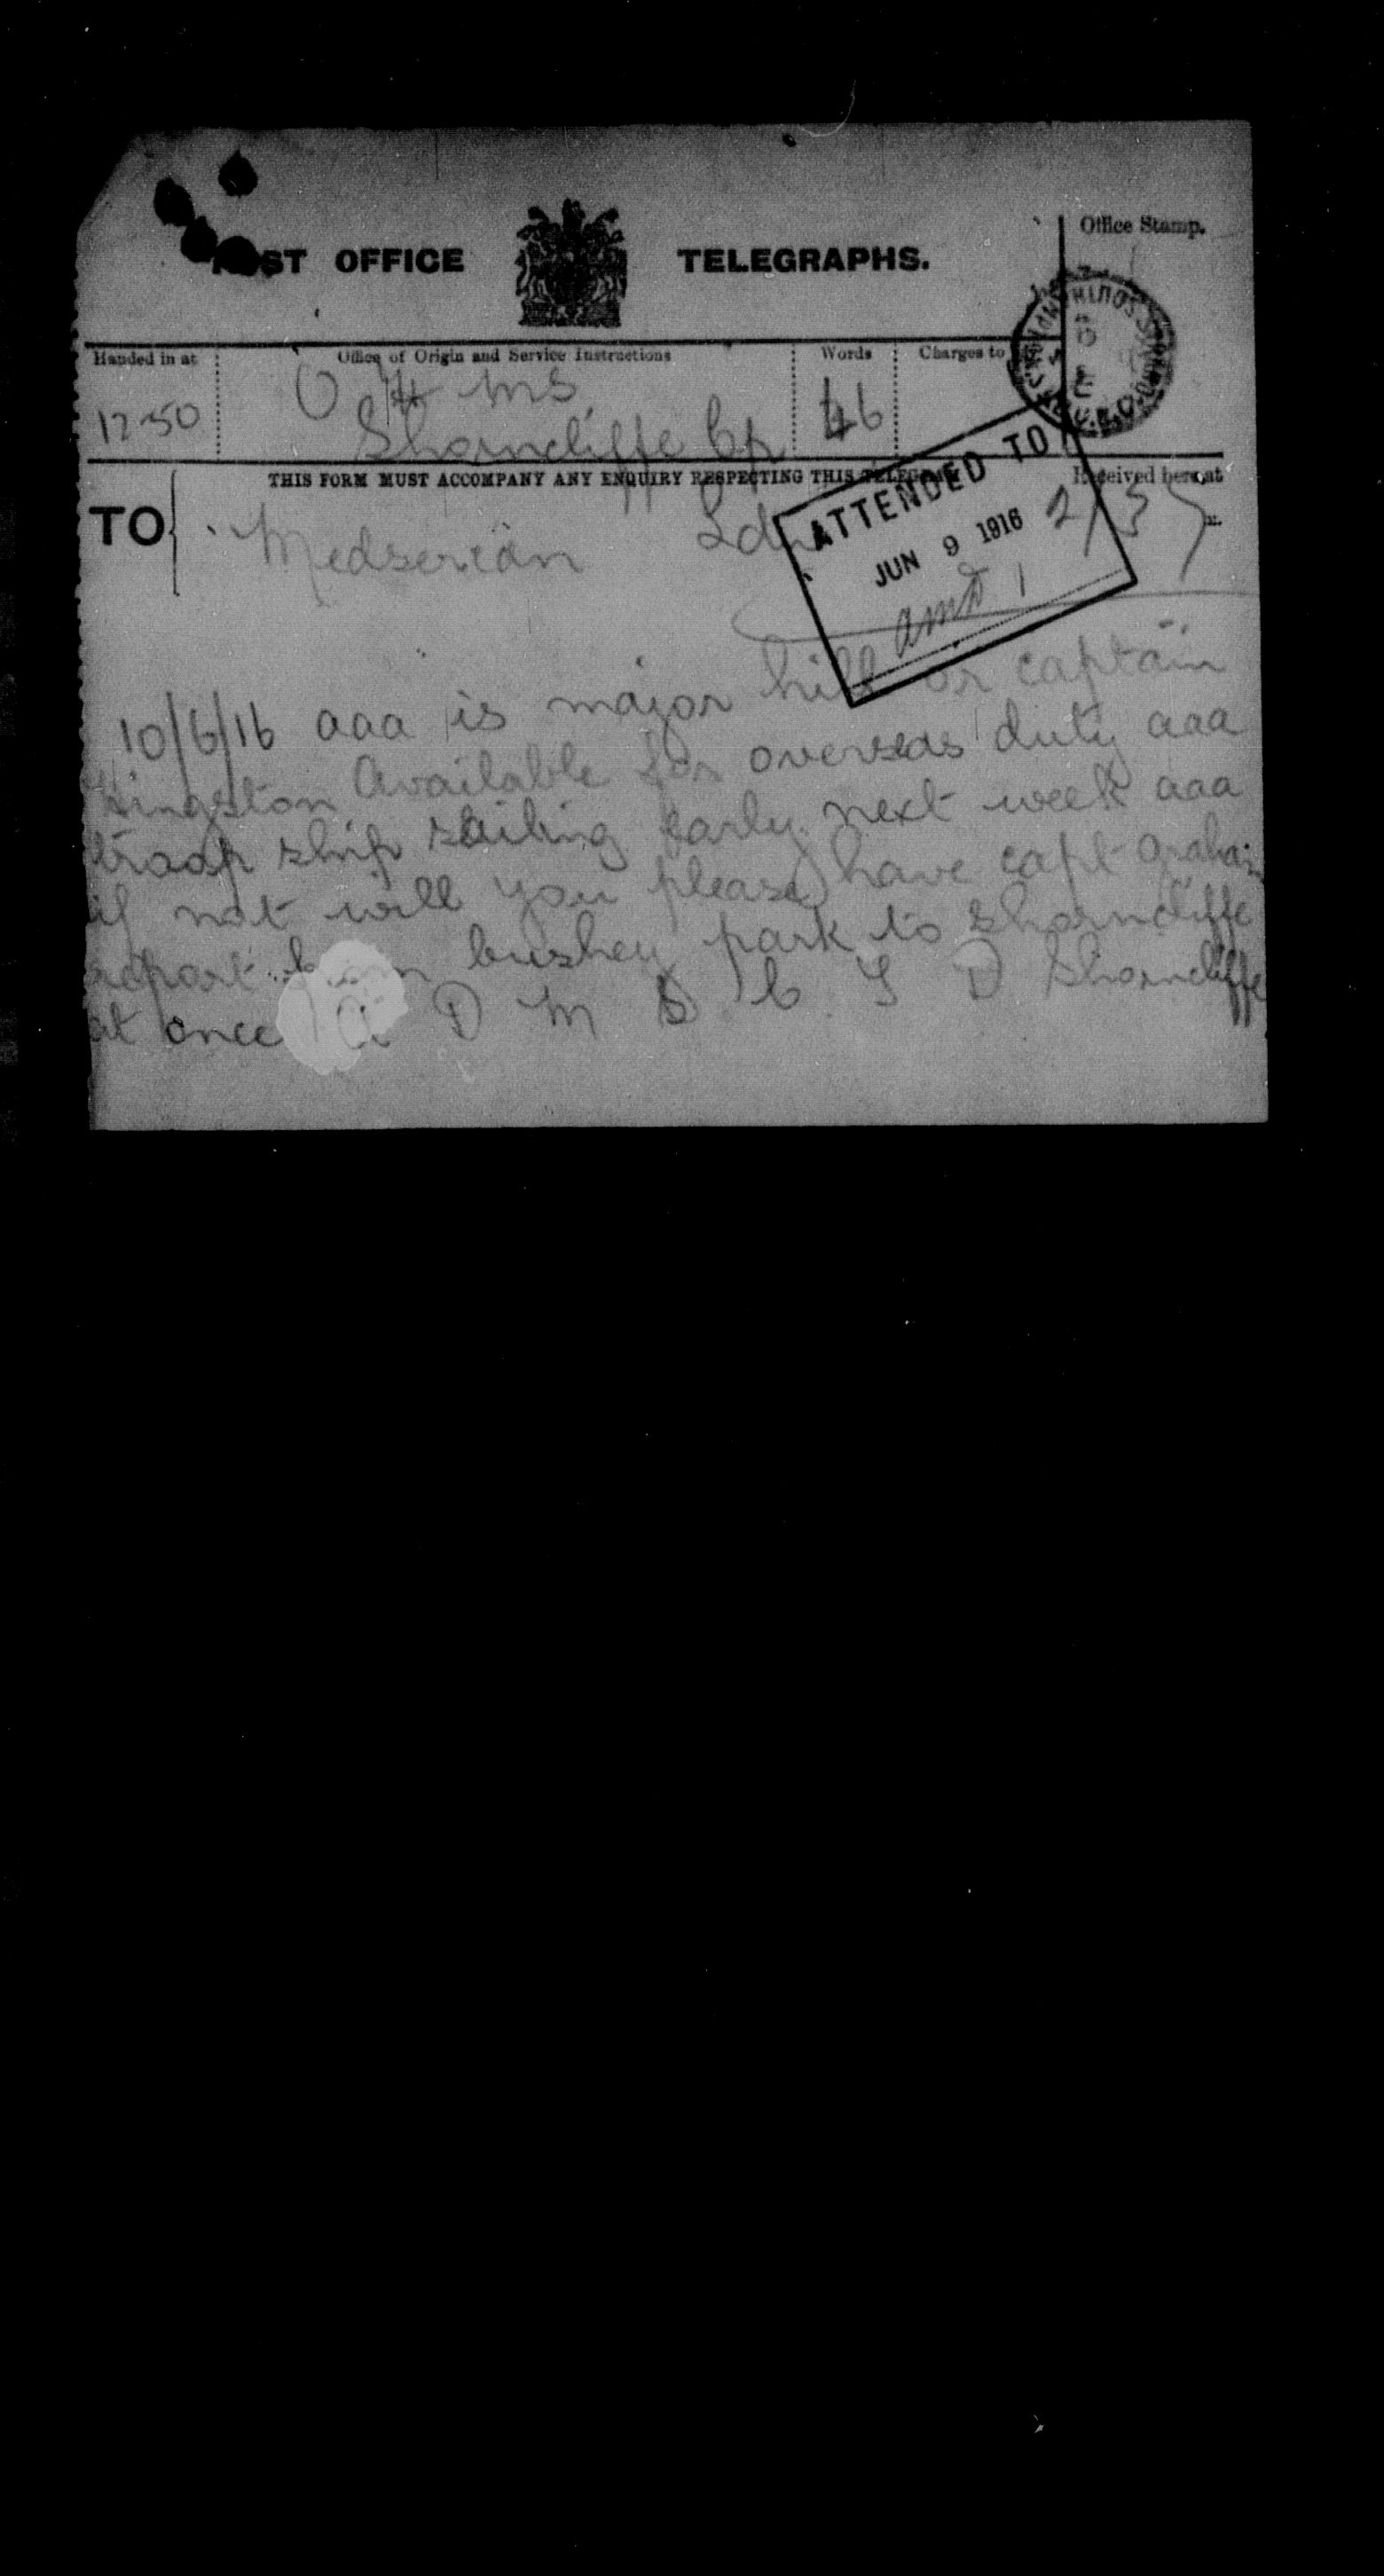 POST OFFICE TELEGRAPHS.
Office Stamp.
Handed in at
Office of Origin and Service Instructions
Words
Charges to
12.50
O H M S
Shorncliffe Cp
46
THIS FORM MUST ACCOMPANY ANY ENQUIRY RESPECTING THIS TELEGRAM
Received here at
TO
Medsercan Ldn
2/35
ATTENDED TO
JUN 9 1916
10/6/16 aaa is major hill or captain
Kingston Available for overseas duty aaa
troop ship sailing early next week aaa
if not will you please have capt graham
report from bushey park to Shorncliffe
at once A D M S C T D Shorncliffe